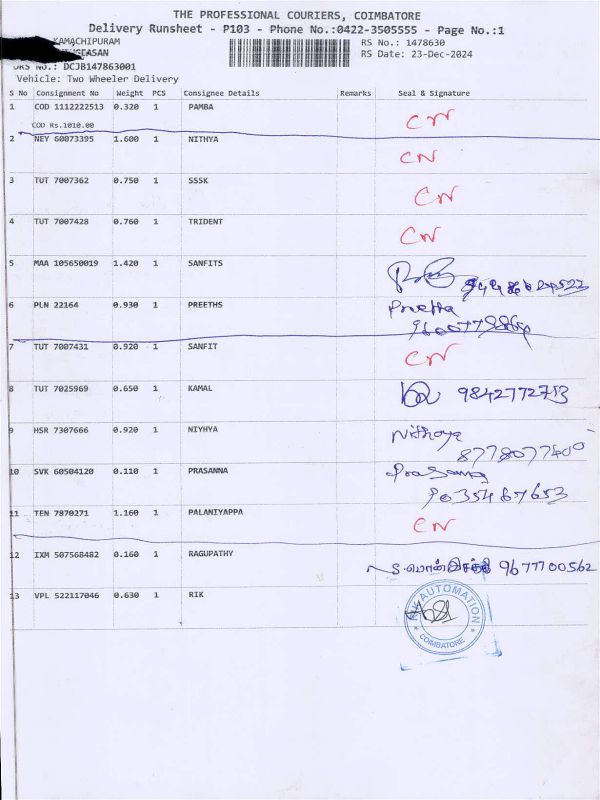 THE PROFESSIONAL COURIERS, COIMBATORE
Delivery Runsheet - P103 - Phone No.:0422-3505555 - Page No.:1
KAMACHIPURAM RS No.: 1478630
RS Date: 23-Dec-2024
DRS No.: DCJB147863001
Vehicle: Two Wheeler Delivery
S No Consignment No Weight PCS Consignee Details Remarks Seal & Signature
1 COD 1112222513 0.320 1 PAMBA CN
COD Rs.1010.00
2 NEY 60073395 1.600 1 NITHYA CN
3 TUT 7007362 0.750 1 SSSK CN
4 TUT 7007428 0.760 1 TRIDENT CN
5 MAA 105650019 1.420 1 SANFITS
6 PLN 22164 0.930 1 PREETHS Preetha
7 TUT 7007431 0.920 1 SANFIT CN
8 TUT 7025969 0.650 1 KAMAL 9842772713
9 HSR 7307666 0.920 1 NIYHYA Nithoya
8778077400
10 SVK 60504120 0.110 1 PRASANNA Prasanna
9035467653
11 TEN 7870271 1.160 1 PALANIYAPPA CN
12 IXM 507568482 0.160 1 RAGUPATHY 9677700562
13 VPL 522117046 0.630 1 RIK
RIK AUTOMATION
COIMBATORE